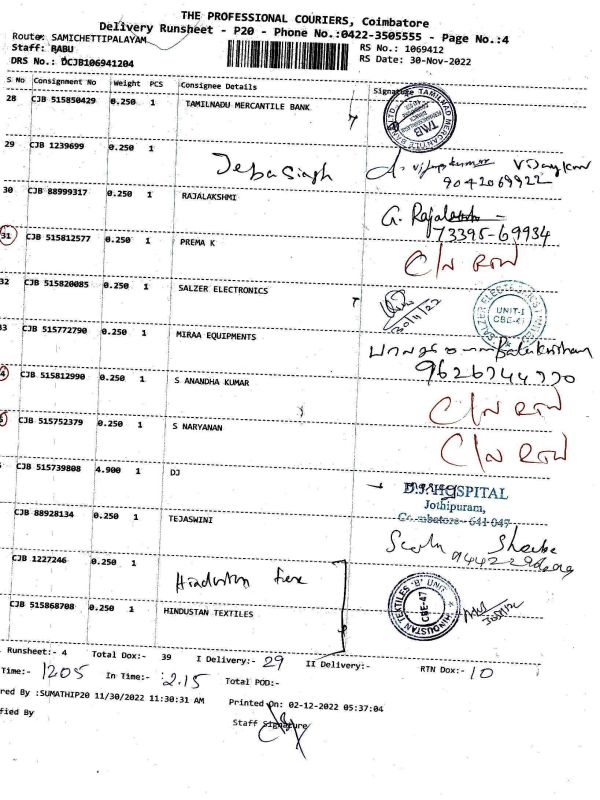 THE PROFESSIONAL COURIERS, Coimbatore
Delivery Runsheet - P20 - Phone No.:0422-3505555 - Page No.:4
Route: SAMICHETTIPALAYAM
Staff: BABU
DRS No.: DCJB106941204
RS No.: 1069412
RS Date: 30-Nov-2022
S No Consignment No Weight PCS Consignee Details Signature
28 CJB 515850429 0.250 1 TAMILNADU MERCANTILE BANK
TAMILNAD MERCANTILE BANK LTD
TMB
29 CJB 1239699 0.250 1 Jeba Singh
9042069922
30 CJB 88999317 0.250 1 RAJALAKSHMI
73395-69934
31 CJB 515812577 0.250 1 PREMA K
32 CJB 515820085 0.250 1 SALZER ELECTRONICS
30/11/22
SALZER ELECTRONICS LIMITED
UNIT-I
CBE-47
33 CJB 515772790 0.250 1 MIRAA EQUIPMENTS
9626744770
CJB 515812990 0.250 1 S ANANDHA KUMAR
CJB 515752379 0.250 1 S NARYANAN
CJB 515739808 4.900 1 DJ
D.J. HOSPITAL
Jothipuram,
Coimbatore - 641 047
CJB 88928134 0.250 1 TEJASWINI
CJB 1227246 0.250 1 Hindustan
CJB 515868708 0.250 1 HINDUSTAN TEXTILES
HINDUSTAN TEXTILES 'B' UNIT
CBE-47
Runsheet:- 4 Total Dox:- 39 I Delivery:- 29 II Delivery:- RTN Dox:- 10
Time:- 1205 In Time:- 2.15 Total POD:-
red By :SUMATHIP20 11/30/2022 11:30:31 AM Printed On: 02-12-2022 05:37:04
fied By
Staff Signature